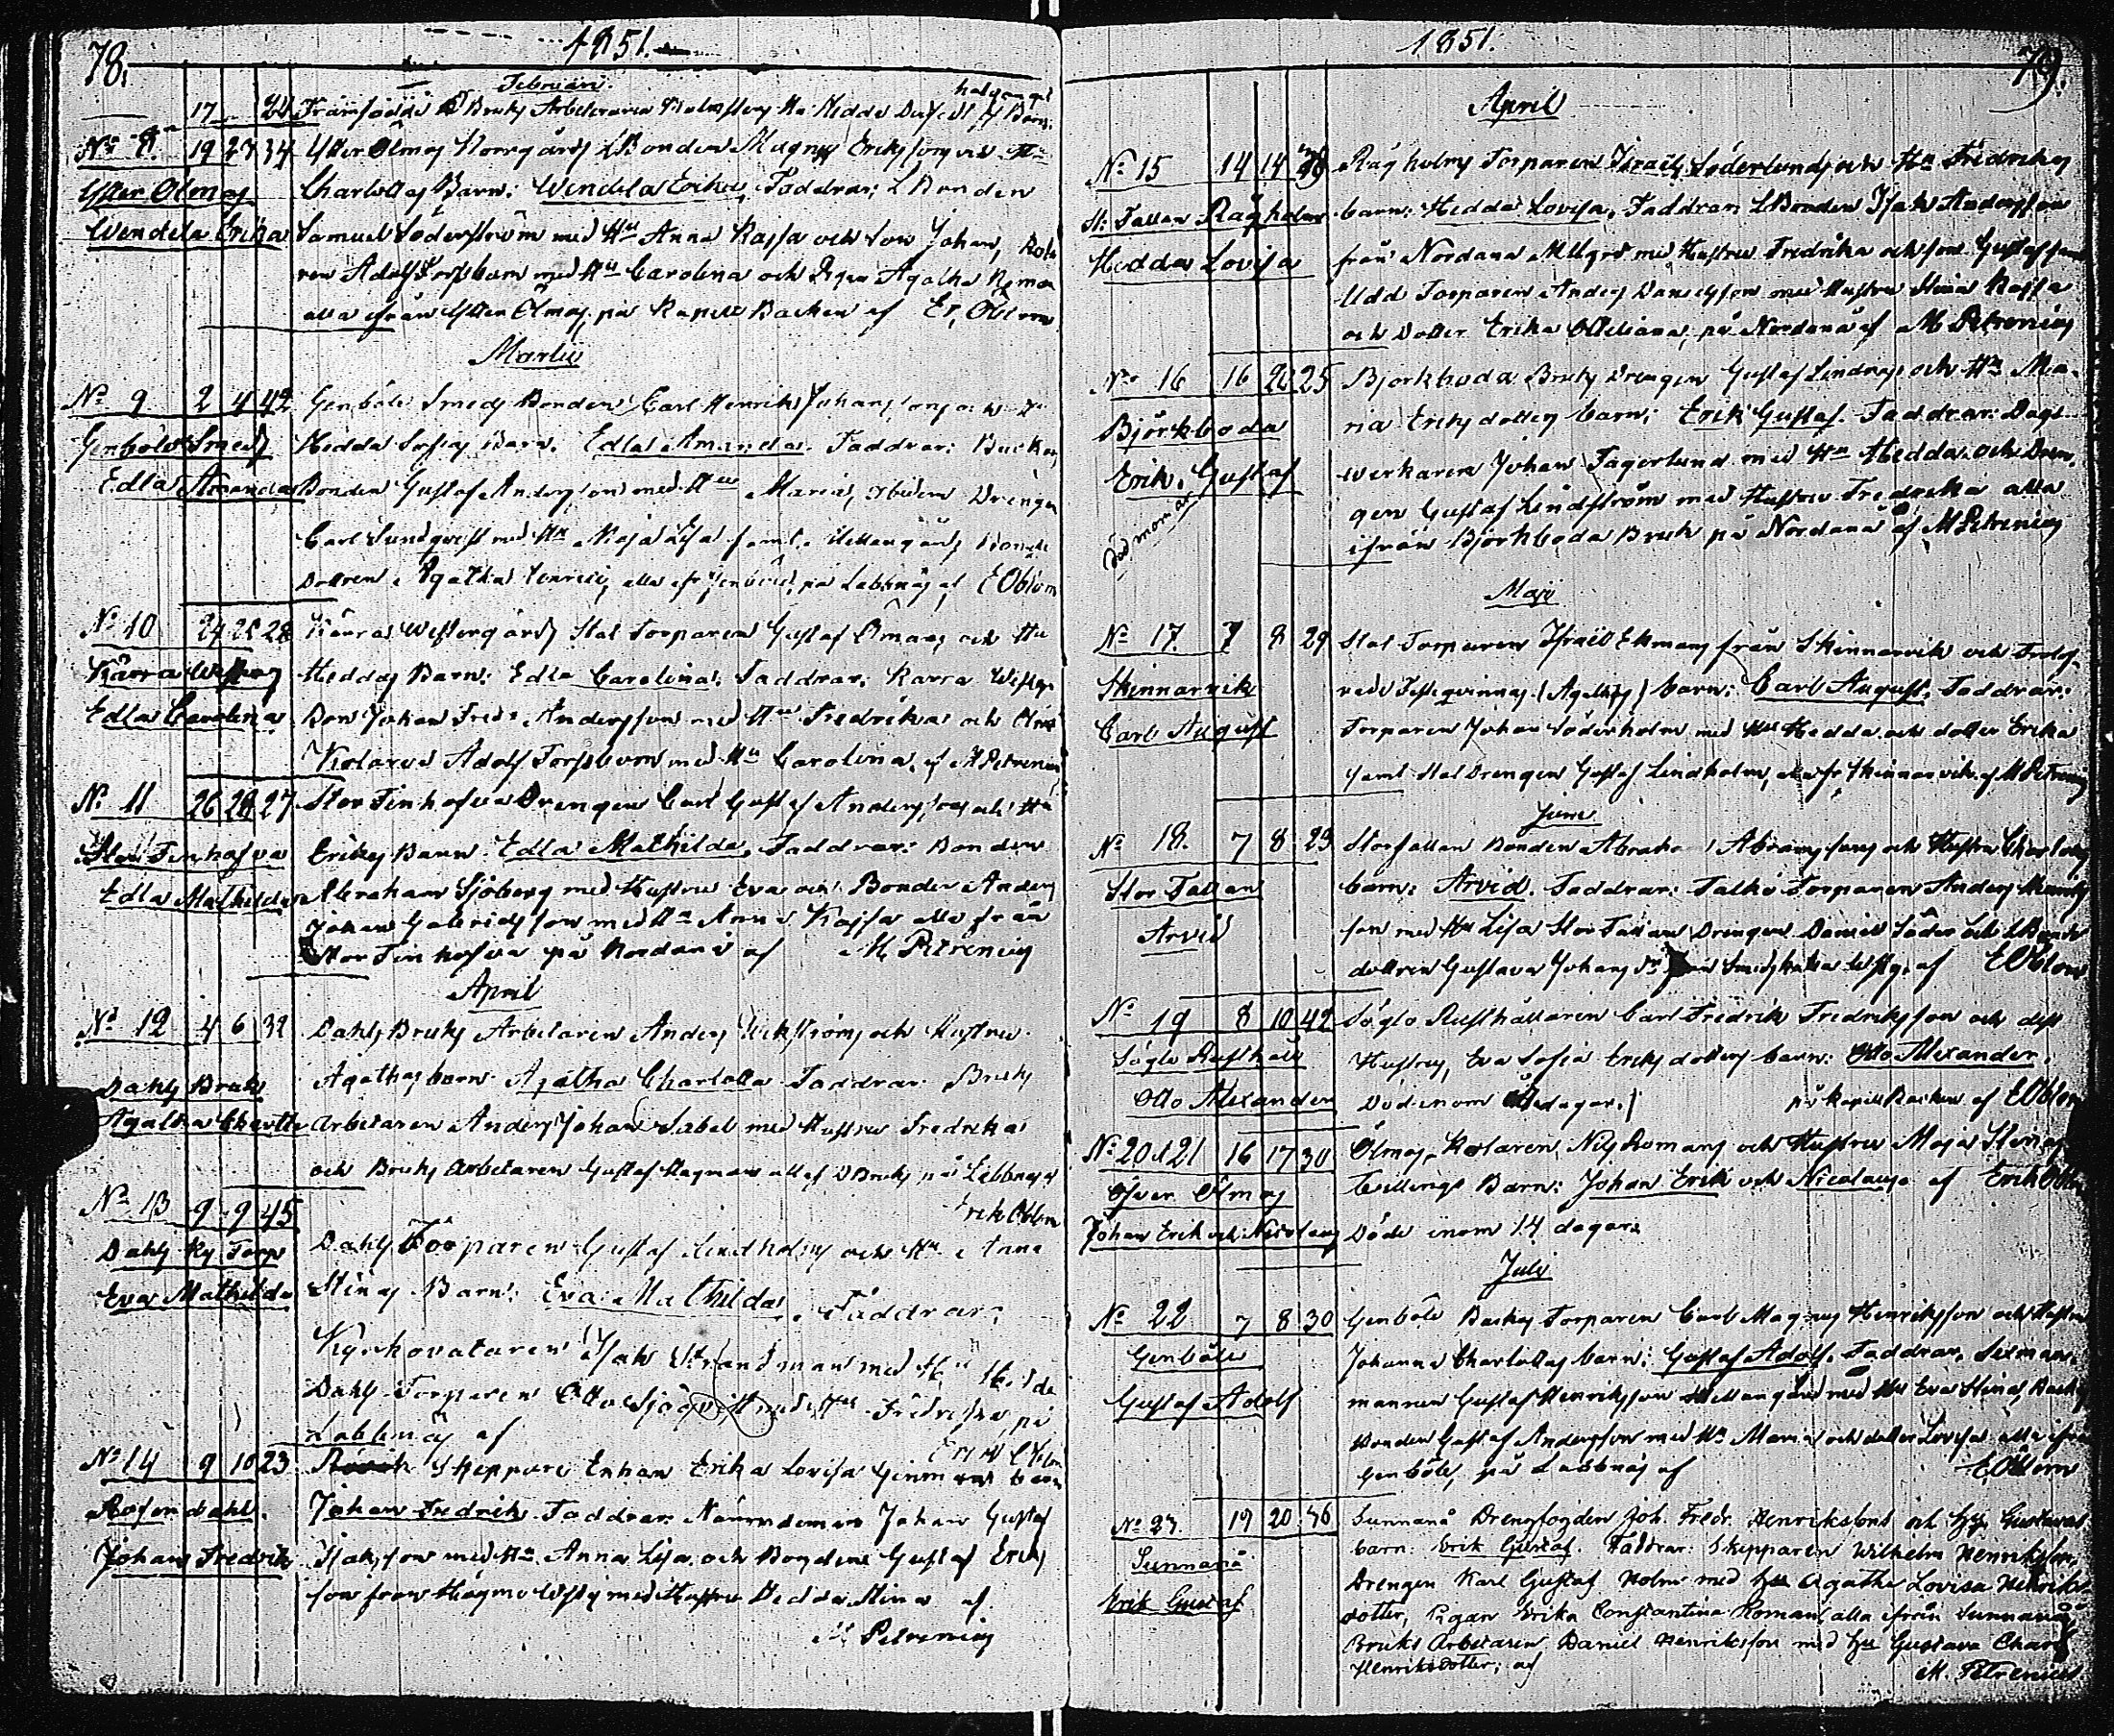 78.
1851.
Februari
17 24 Framfödde Bruks Arbetaren Hu Hedda
No 8. 19 23 34 Ytter Ölmos Norrgårds LBonden Magnus Erikssons och Hu
Ytter Ölmos Charlottas Barn: Wendela Erika, Faddrar: LBonden
Wendela Erika Samuel Söderström med Hu Anna Kajsa och Son Johan, Kola
ren Adolf Forsbom med Hu Carolina och Pigan Agatha Roman
alla ifrån Ytter Ölmos, på Kapell Backen af Er. Oblom
Martii
No 9 2 4 42 Genböle Smeds Bonden Carl Henrik Johanssons och Hu
Genböle Smeds Hedda Sofias Barn. Edla Amanda. Faddrar: Backas
Edla Amanda Bonden Gustaf Andersson med Hu Maria, Drengen
Carl Sundqvist med Hu Maja Lisa samt Mellangårds Bonde
Dottren Agatha Henrics, alla ifr Genböle, på Labbnäs af E Oblom
No 10 24 25 28 Kärra Westergårds Stat Torparen Gustaf Ömans och Hu
Kärra Westerg Heddas Barn: Edla Carolina. Faddrar: Kärra Westerg
Edla Carolina Bon Johan Fredr Andersson med Hu Fredrika och Ölmos
Kolaren Adolf Forsbom med Hu Carolina. af M Petrenius
No 11 26 28 27 Stor Finhofva Drengen Carl Gustaf Anderssons och Hu
Stor Finhofva Erikas Barn Edla Mathilda. Faddrar: Bonden
Edla Mathilda Abraham Sjöberg med Hustru Eva och Bonden Anders
Johan Gabrielsson med Hu Anna Kajsa alla från
Stor Finhofva på Nordanå af M Petrenius
April
No 12 4 6 32 Dahls Bruks Arbetaren Anders Wikströms och Hustru
Dahls Bruk Agathas barn Agatha Charlotta Faddrar Bruks
Agatha Charlotta arbetaren Anders Johan Sabel med Hustru Fredrika
och Bruks arbetaren Gustaf Hagman all af D Bruk, på Labbnäs af
Erik Oblom
No 13 9 9 45
Dahls Ky Torp Dahls Torparen Gustaf Lindholms och Hu Anna
Eva Mathilda Stinas Barn: Eva Mathilda. Faddrar:
Kyrkovaktaren Isak Strandman med Hu Hedda
Dahls Torparen Otto Sjöqvist med Hu Fredrika, på
Labbnäs af Erik Oblom
No 14 9 10 23 Skeppare Enkan Erika Lovisa barn
Rosendahl. Johan Fredrik. Faddrar Nämndeman Johan Gustaf
Johan Fredrik Isaksson med Hu Anna Lisa och Bonden Gustaf Eriks
son från Högmo Westg med Hustru Hedda Stina af
M Petrenius
1851.
79.
April
No 15 14 14 Rågholms Torparen Israel Söderlunds och Hu Fredrikas
St: Tallan Rågholm barn: Hedda Lovisa. Faddrar LBonden Isak Andersson
Hedda Lovisa från Nordanå Mllgrd med Hustru Fredrika och son Gustaf samt
Udd Torparen Anders Danielsson med Hustru Stina Kajsa
och Dotter Erika på Nordanå af M Petrenius
No 16 16 22 25 Björkboda Bruks Drengen Gustaf Lindroos och Hu Ma-
Björkboda ria Eriksdotters barn: Erik Gustaf. Faddrar: Dags
Erik Gustaf werkaren Johan Fagerlund med Hu Hedda och Dren-
gen Gustaf Lindström med Hustru Fredrika alla
ifrån Björkboda Bruk på Nordanå af M Petrenius
Maji
No 17. 7 8 29 Stat Torparen Israel Ekmans från Skinnarvik och
Skinnarvik barn: Carl August. Faddrar:
Carl August Torparen Johan Söderholm med Hu Hedda och dotter Erika
samt Stat Drengen Gustaf Lindholm, alla fr Skinnarvik af M Petrenius
Junii
No 18. 7 8 23 Storfallan Bonden Abraham Abramssons och Hustru Charlottas
Stor Tallan barn: Arvid. Faddrar: Talko Torparen Anders
Arvid son med Hu Lisa Stor Tallan Drengen Daniel Söder och LBonde
dottren Gustava Johans af E Oblom
No 19 8 10 42 Söglö Rusthållaren Carl Fredrik Fredriksson och dess
Söglö Rusthåll Hustrus, Eva Sofia Eriks dotters barn: Otto Alexander.
Otto Alexander Död inom dagar. på Kapell Backen af E Oblom
No 20 & 21 16 17 30 Ölmos Kolaren Nils Romans och Hustru Maja Stinas
Öfver Ölmos Twillings Barn: Johan Erik och Nicolaus af Erik Oblom
Johan Erik och Nicolaus Döde inom 14 dagar.
Julii
No 22 7 8 30 Genböle Backas Torparen Carl Magnus Henriksson och Hustru
Genböle Johanna Charlottas barn: Gustaf Adolf. Faddrar, Sexman
Gustaf Adolf mannen Gustaf Henriksson Mellangård med Hu Eva Stina, Backas
Bonden Gustaf Andersson med Hu Maria och dotter Lovisa alla ifrån
Genböle, på Labbnäs af E. Oblom
No 23. 19 20 36 Sunnanå Drengfogden Joh. Fredr. Henrikssons och Hu Gustavas
Sunnanå barn: Erik Gustaf. Faddrar: Skepparen Wilhelm Henriksson,
Erik Gustaf Drengen Karl Gustaf Holm med Hu Agatha Lovisa Henriks
dotter, Pigan Erika Constantina Roman alla ifrån Sunnanå,
Bruks Arbetaren Daniel Henriksson med Hu Gustava Charl
Henriksdotter; af M. Petrenius